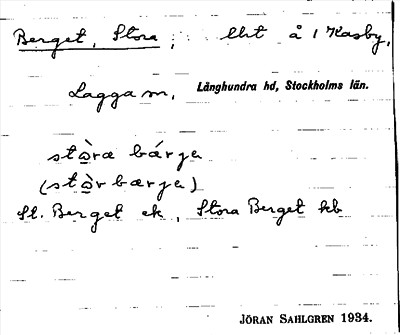 Berget, Stora ; lht å 1 Kasby,
Lagga sn, Långhundra hd, Stockholms län.
stòra bárjɐ
(stòr bærjɐ)
St. Berget ek, Stora Berget kb
JÖRAN SAHLGREN 1934.